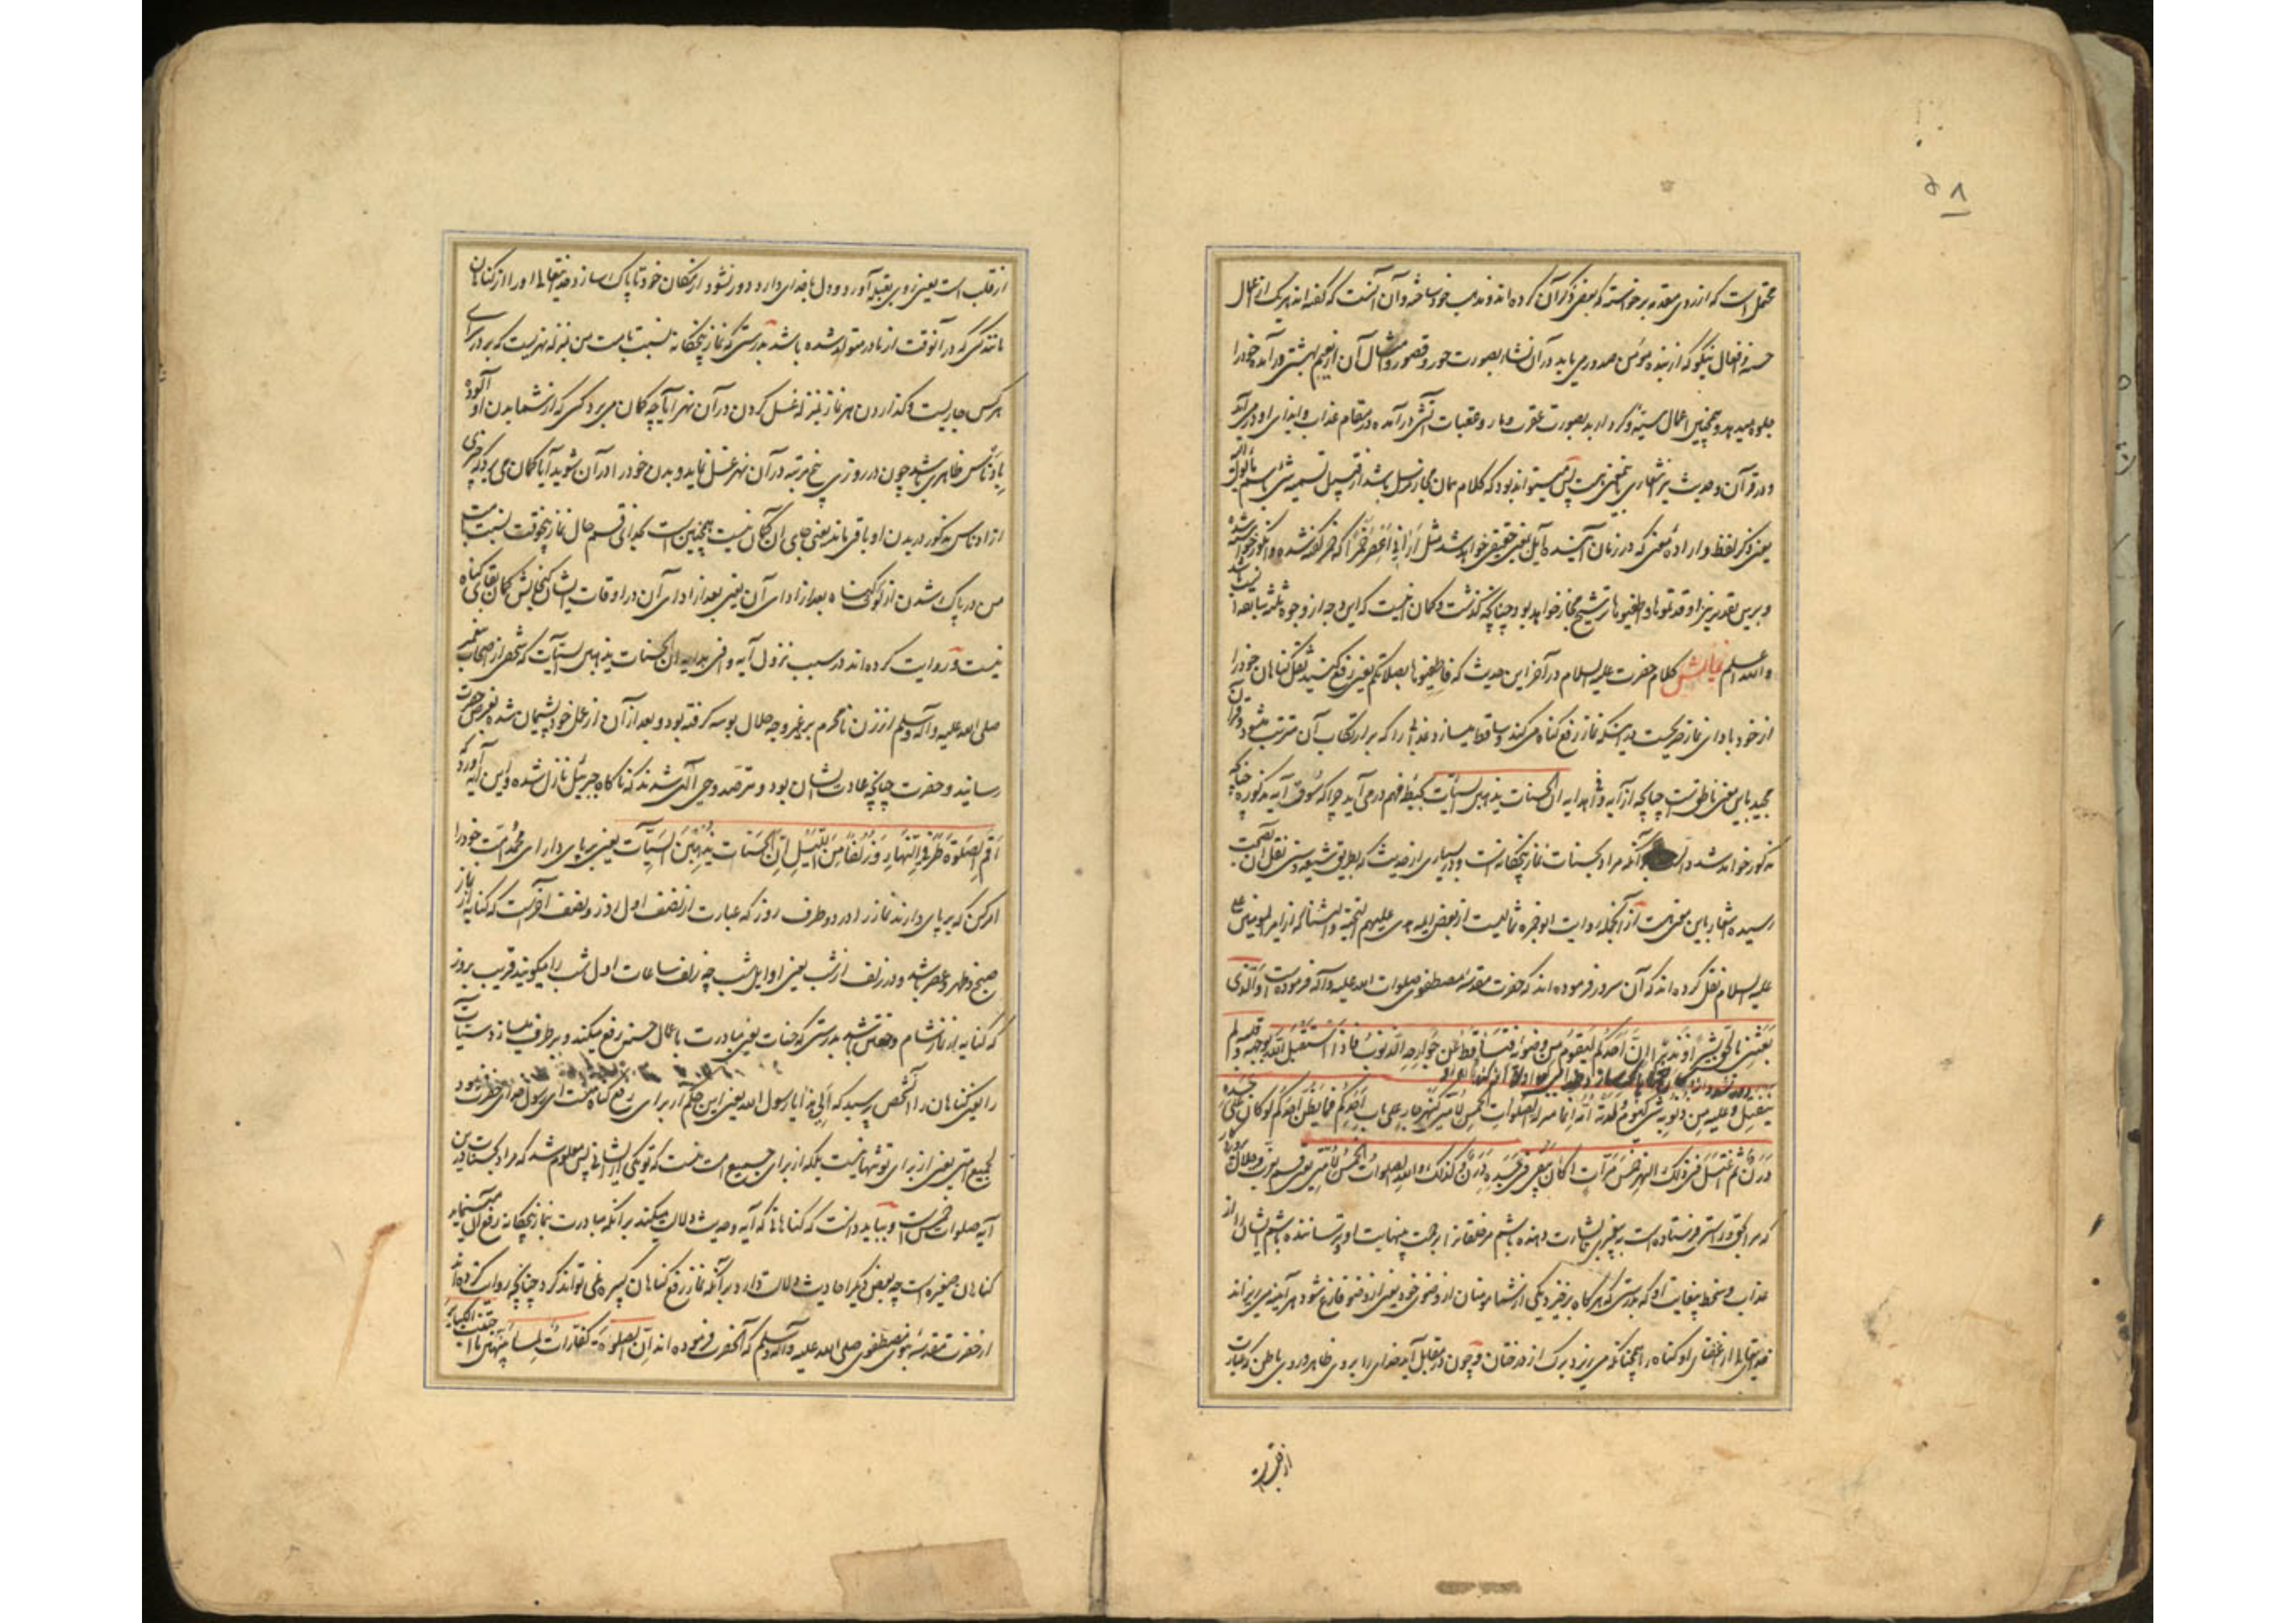 ۵۸
محتمل است که از روی مقدمه برخواسته که بعضی ذکر آن کرده‌اند و مذهب خود ساخته و آن آنست که گفته‌اند هر یک از اعمال
حسنه و افعال نیکو که از بنده مؤمن صدور می یابد در آن نشاه بصورت حور و قصور و امثال آن از نعیم بهشتی در آمده خود را
جلوه میدهد و همچنین اعمال سیئه و کردار بد بصورت عقرب و مار و عقبات آتش در آمده در مقام عذاب و ایذای او در می آید
و در قرآن و حدیث نیز اشعاری باین معنی هست پس میتواند بود که کلام همان مجاز مرسل باشد از قبیل تسمیه شیء باسم ما یؤل الیه
یعنی ذکر لفظ و اراده معنی که در زمان آینده آیل بمعنی حقیقی خواهد شد مثل اَرانی اَعصِرُ خَمراً که خمر گفته شده و انگور خواسته شده
و برین تقدیر نیز اوقدتموها و اطفئوها ترشیح مجاز خواهد بود چنانچه گذشت و گمان نیست که این وجه از وجوه ثلثه سابقه انسب باشد
والله اعلم نمایش کلام حضرت علیه السلام در آخر این حدیث که فاطفئوها بصلاتکم یعنی رفع کنید ثقل گناهان خود را
از خود بادای نماز صریحست در اینکه نماز رفع گناه می کند و ساقط میسازد عذابی را که بر ارتکاب آن مترتب میشود و قرآن
مجید باین معنی ناطق است چنانچه از آیه وافی هدایه ان الحسنات یذهبن السیئات بحیطه فهم در می آید چرا که سوق آیه مذکوره چنانچه
مذکور خواهد شد دال بر آنکه مراد بحسنات نماز پنجگانه است و در بسیاری از حدیث که بطریق شیعه و سنی نقل آن بصحت
رسیده اشعار باین معنی هست از آنجمله روایت ابو حمزه ثمالیست از بعض ایمه هدی علیهم التحیة و الثنا که از امیر المومنین علی
علیه السلام نقل کرده‌اند که آن سرور فرموده‌اند که حضرت مقدسه مصطفوی صلوات الله علیه و آله فرموده است و الّذی
بَعَثَنی بالحقّ بشیراً و نذیراً اِنَّ اَحَدَکُم لیَقومُ من وضوئه فتساقط عن جوارحه الذنوب فاذا استقبل الله بوجهه و قلبه لم
ینفتل و علیه من ذنوبه شیء کیوم ولدته اُمّه انما منزلة الصلوات الخمس لاُمّتی کنهر جار علی باب احدکم فما یظنّ احدکم لو کان فی جسده
دَرَن ثم اغتسل فی ذلک النهر خمس مرّات اکان یبقی فی جسده دَرَن و کذلک والله الصلوات الخمس لاُمّتی یعنی قسم بعزت و جلال
که مرا بحق و راستی فرستاده است به پیغمبری تا بشارت دهنده باشم مر خلقانرا برحمت بینهایت او و ترساننده باشم ایشان را از
عذاب و سخط بیغایت او که بدرستی که هر گاه برخیزد یکی از شما مؤمنان از وضوی خود یعنی از وضو فارغ شود هر آینه می ریزاند
خدایتعالی از اعضای او گناه را همچنانکه می ریزد برگ از درختان و چون در مقابل آید خدای را بروی ظاهر و روی باطن که عبارت
از قلب است
از قلب است یعنی روی بقبله آورد و دل با خدای دارد دور نشود از مکان خود تا پاک سازد خدایتعالی او را از گناهان
مانند کسی که در آنوقت از مادر متولد شده باشد بدرستی که نماز پنجگانه نسبت بامت من بمنزله نهریست که بر در سرای
هر کس جاریست و گذاردن هر نماز بمنزله غسل کردن در آن نهر آیا چه گمان می برد کسی که از شما بدن او آلوده
بادناس ظاهری باشد چون در روزی پنج مرتبه در آن نهر غسل نماید و بدن خود را در آن شوید آیا گمان می برد که چیزی
از ادناس مذکور در بدن او باقی ماند یعنی جای این گمان نیست همچنین است بخدای قسم حال نماز پنجوقت نسبت بامت
من در پاک شدن از لوث گناه بعد از ادای آن یعنی بعد از ادای آن در اوقات ایشان گنجایش گمان بقای گناه
نیست و روایت کرده‌اند در سبب نزول آیه وافی هدایه ان الحسنات یذهبن السیئات که شخصی از اصحاب پیغمبر
صلی الله علیه و آله و سلم از زن نامحرم بر غیر وجه حلال بوسه گرفته بود و بعد از آن از عمل خود پشیمان شده بعرض حضرت
رسانید و حضرت چنانچه عادت ایشان بود مترصد وحی الهی شدند که ناگاه جبرئیل نازل شده و این آیه آورد که
اَقِمِ الصَّلوٰةَ طَرَفَیِ النَّهارِ وَ زُلَفاً مِنَ اللَّیلِ اِنَّ الحَسَناتِ یُذهِبنَ السَّیِّئاتِ یعنی بر پای دار ای محمد و امت خود را
امر کن که بر پای دارند نماز را در دو طرف روز که عبارت از نصف اول روز و نصف آخر است که کنایه از نماز
صبح و ظهر و عصر باشد و در زلف از شب یعنی اوایل شب چه زلف ساعات اول شب را میگویند قریب بروز
که کنایه از نماز شام و خفتن باشد بدرستی که حسنات یعنی مبادرت باعمال حسنه رفع میکند و برطرف میسازد سیئات
را یعنی گناهان را آنشخص پرسید که اَلِیَ هذا یا رسول الله یعنی این حکم از برای رفع گناه منست ای رسول خدای حضرت فرمود
لجمیع امتی یعنی از برای تو تنها نیست بلکه از برای جمیع امت منست که تو یکی از ایشانی پس معلوم شد که مراد بحسنات درین
آیه صلوات خمس است و بباید دانست که گناهانی که آیه و حدیث دلالت میکند بر آنکه مبادرت بنماز پنجگانه رفع آن مینماید
گناهان صغیره است چه بعض دیگر احادیث دلالت دارد بر آنکه نماز رفع گناهان کبیره نمی تواند کرد چنانچه روایت کرده‌اند
از حضرت مقدسه نبوی مصطفوی صلی الله علیه و آله و سلم که آنحضرت فرموده‌اند اِنَّ الصلوة کفّارات لما بینهنّ ما اجتنبت الکبائر